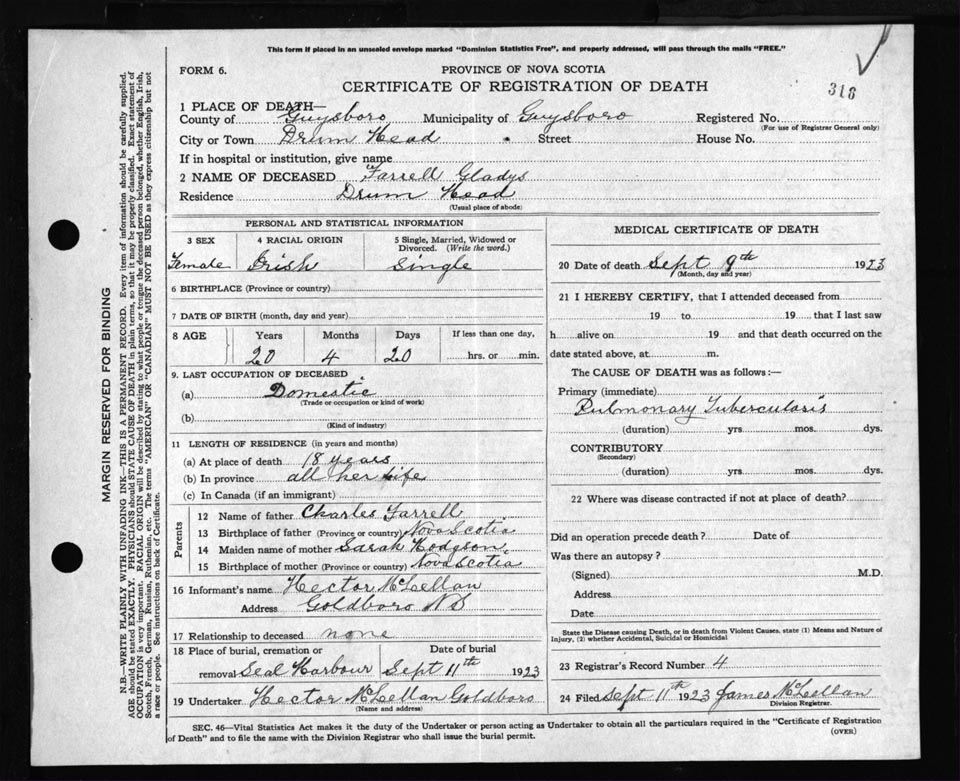 This form if placed in an unsealed envelope marked "Dominion Statistics Free", and properly addressed, will pass through the mails "FREE."
FORM 6.
PROVINCE OF NOVA SCOTIA
CERTIFICATE OF REGISTRATION OF DEATH
318
1 PLACE OF DEATH—
County of Guysboro Municipality of Guysboro Registered No.
(For use of Registrar General only)
City or Town Drum Head Street House No.
If in hospital or institution, give name
2 NAME OF DECEASED Farrell Gladys
Residence Drum Head
(Usual place of abode)
PERSONAL AND STATISTICAL INFORMATION
3 SEX 4 RACIAL ORIGIN 5 Single, Married, Widowed or Divorced. (Write the word.)
Female Irish Single
6 BIRTHPLACE (Province or country)
7 DATE OF BIRTH (month, day and year)
8 AGE Years Months Days If less than one day,
20 4 20 hrs. or min.
9. LAST OCCUPATION OF DECEASED
(a) Domestic
(Trade or occupation or kind of work)
(b)
(Kind of industry)
11 LENGTH OF RESIDENCE (in years and months)
(a) At place of death 18 years
(b) In province all her Life
(c) In Canada (if an immigrant)
Parents
12 Name of father Charles Farrell
13 Birthplace of father (Province or country) Nova Scotia
14 Maiden name of mother Sarah Hodgson
15 Birthplace of mother (Province or country) Nova Scotia
16 Informant's name Hector McLellan
Address Goldboro NS
17 Relationship to deceased none
18 Place of burial, cremation or Date of burial
removal Seal Harbour Sept 11th 1923
19 Undertaker Hector McLellan Goldboro
(Name and address)
MEDICAL CERTIFICATE OF DEATH
20 Date of death Sept 9th 1923
(Month, day and year)
21 I HEREBY CERTIFY, that I attended deceased from
19 to 19 that I last saw
h alive on 19 and that death occurred on the
date stated above, at m.
The CAUSE OF DEATH was as follows:—
Primary (immediate)
Pulmonary Tuberculosis
(duration) yrs. mos. dys.
CONTRIBUTORY
(Secondary)
(duration) yrs. mos. dys.
22 Where was disease contracted if not at place of death?
Did an operation precede death? Date of
Was there an autopsy?
(Signed) M.D.
Address
Date
State the Disease causing Death, or in death from Violent Causes, state (1) Means and Nature of
Injury, (2) whether Accidental, Suicidal or Homicidal
23 Registrar's Record Number 4
24 Filed Sept 11th 1923 James McLellan
Division Registrar.
SEC. 46—Vital Statistics Act makes it the duty of the Undertaker or person acting as Undertaker to obtain all the particulars required in the "Certificate of Registration
of Death" and to file the same with the Division Registrar who shall issue the burial permit.
(OVER)
MARGIN RESERVED FOR BINDING
N.B.—WRITE PLAINLY WITH UNFADING INK—THIS IS A PERMANENT RECORD. Every item of information should be carefully supplied.
AGE should be stated EXACTLY. PHYSICIANS should STATE CAUSE OF DEATH in plain terms, so that it may be properly classified. Exact statement of
OCCUPATION is very important. RACIAL ORIGIN will be described by stating to what people or tongue the deceased person belonged, whether English, Irish,
Scotch, French, German, Russian, Ruthenian, etc. The terms "AMERICAN" OR "CANADIAN" MUST NOT BE USED as they express citizenship but not
a race or people. See instructions on back of Certificate.